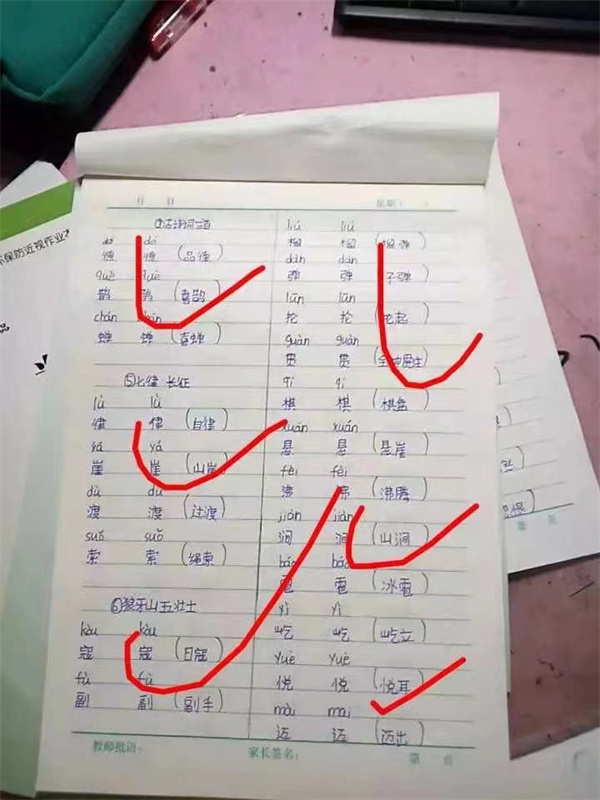 月 日 星期：
③古诗词三首
dé dé
德 德 (品德)
què què
鹊 鹊 (喜鹊)
chán chán
蝉 蝉 (喜蝉)
⑤七律 长征
lǜ lǜ
律 律 (自律)
yá yá
崖 崖 (山崖)
dù dù
渡 渡 (过渡)
suǒ suǒ
索 索 (绳索)
⑥狼牙山五壮士
kòu kòu
寇 寇 (日寇)
fù fù
副 副 (副手)
liú liú
榴 榴 (榴弹)
dàn dàn
弹 弹 (子弹)
lūn lūn
抡 抡 (抡起)
guàn guàn
贯 贯 (全神贯注)
qí qí
棋 棋 (棋盘)
xuán xuán
悬 悬 (悬崖)
fèi fèi
沸 沸 (沸腾)
jiàn jiàn
涧 涧 (山涧)
báo báo
雹 雹 (冰雹)
yì yì
屹 屹 (屹立)
yuè yuè
悦 悦 (悦耳)
mài mài
迈 迈 (迈出)
教师批语： 家长签名： 第 页
保防近视作业
品
第 页